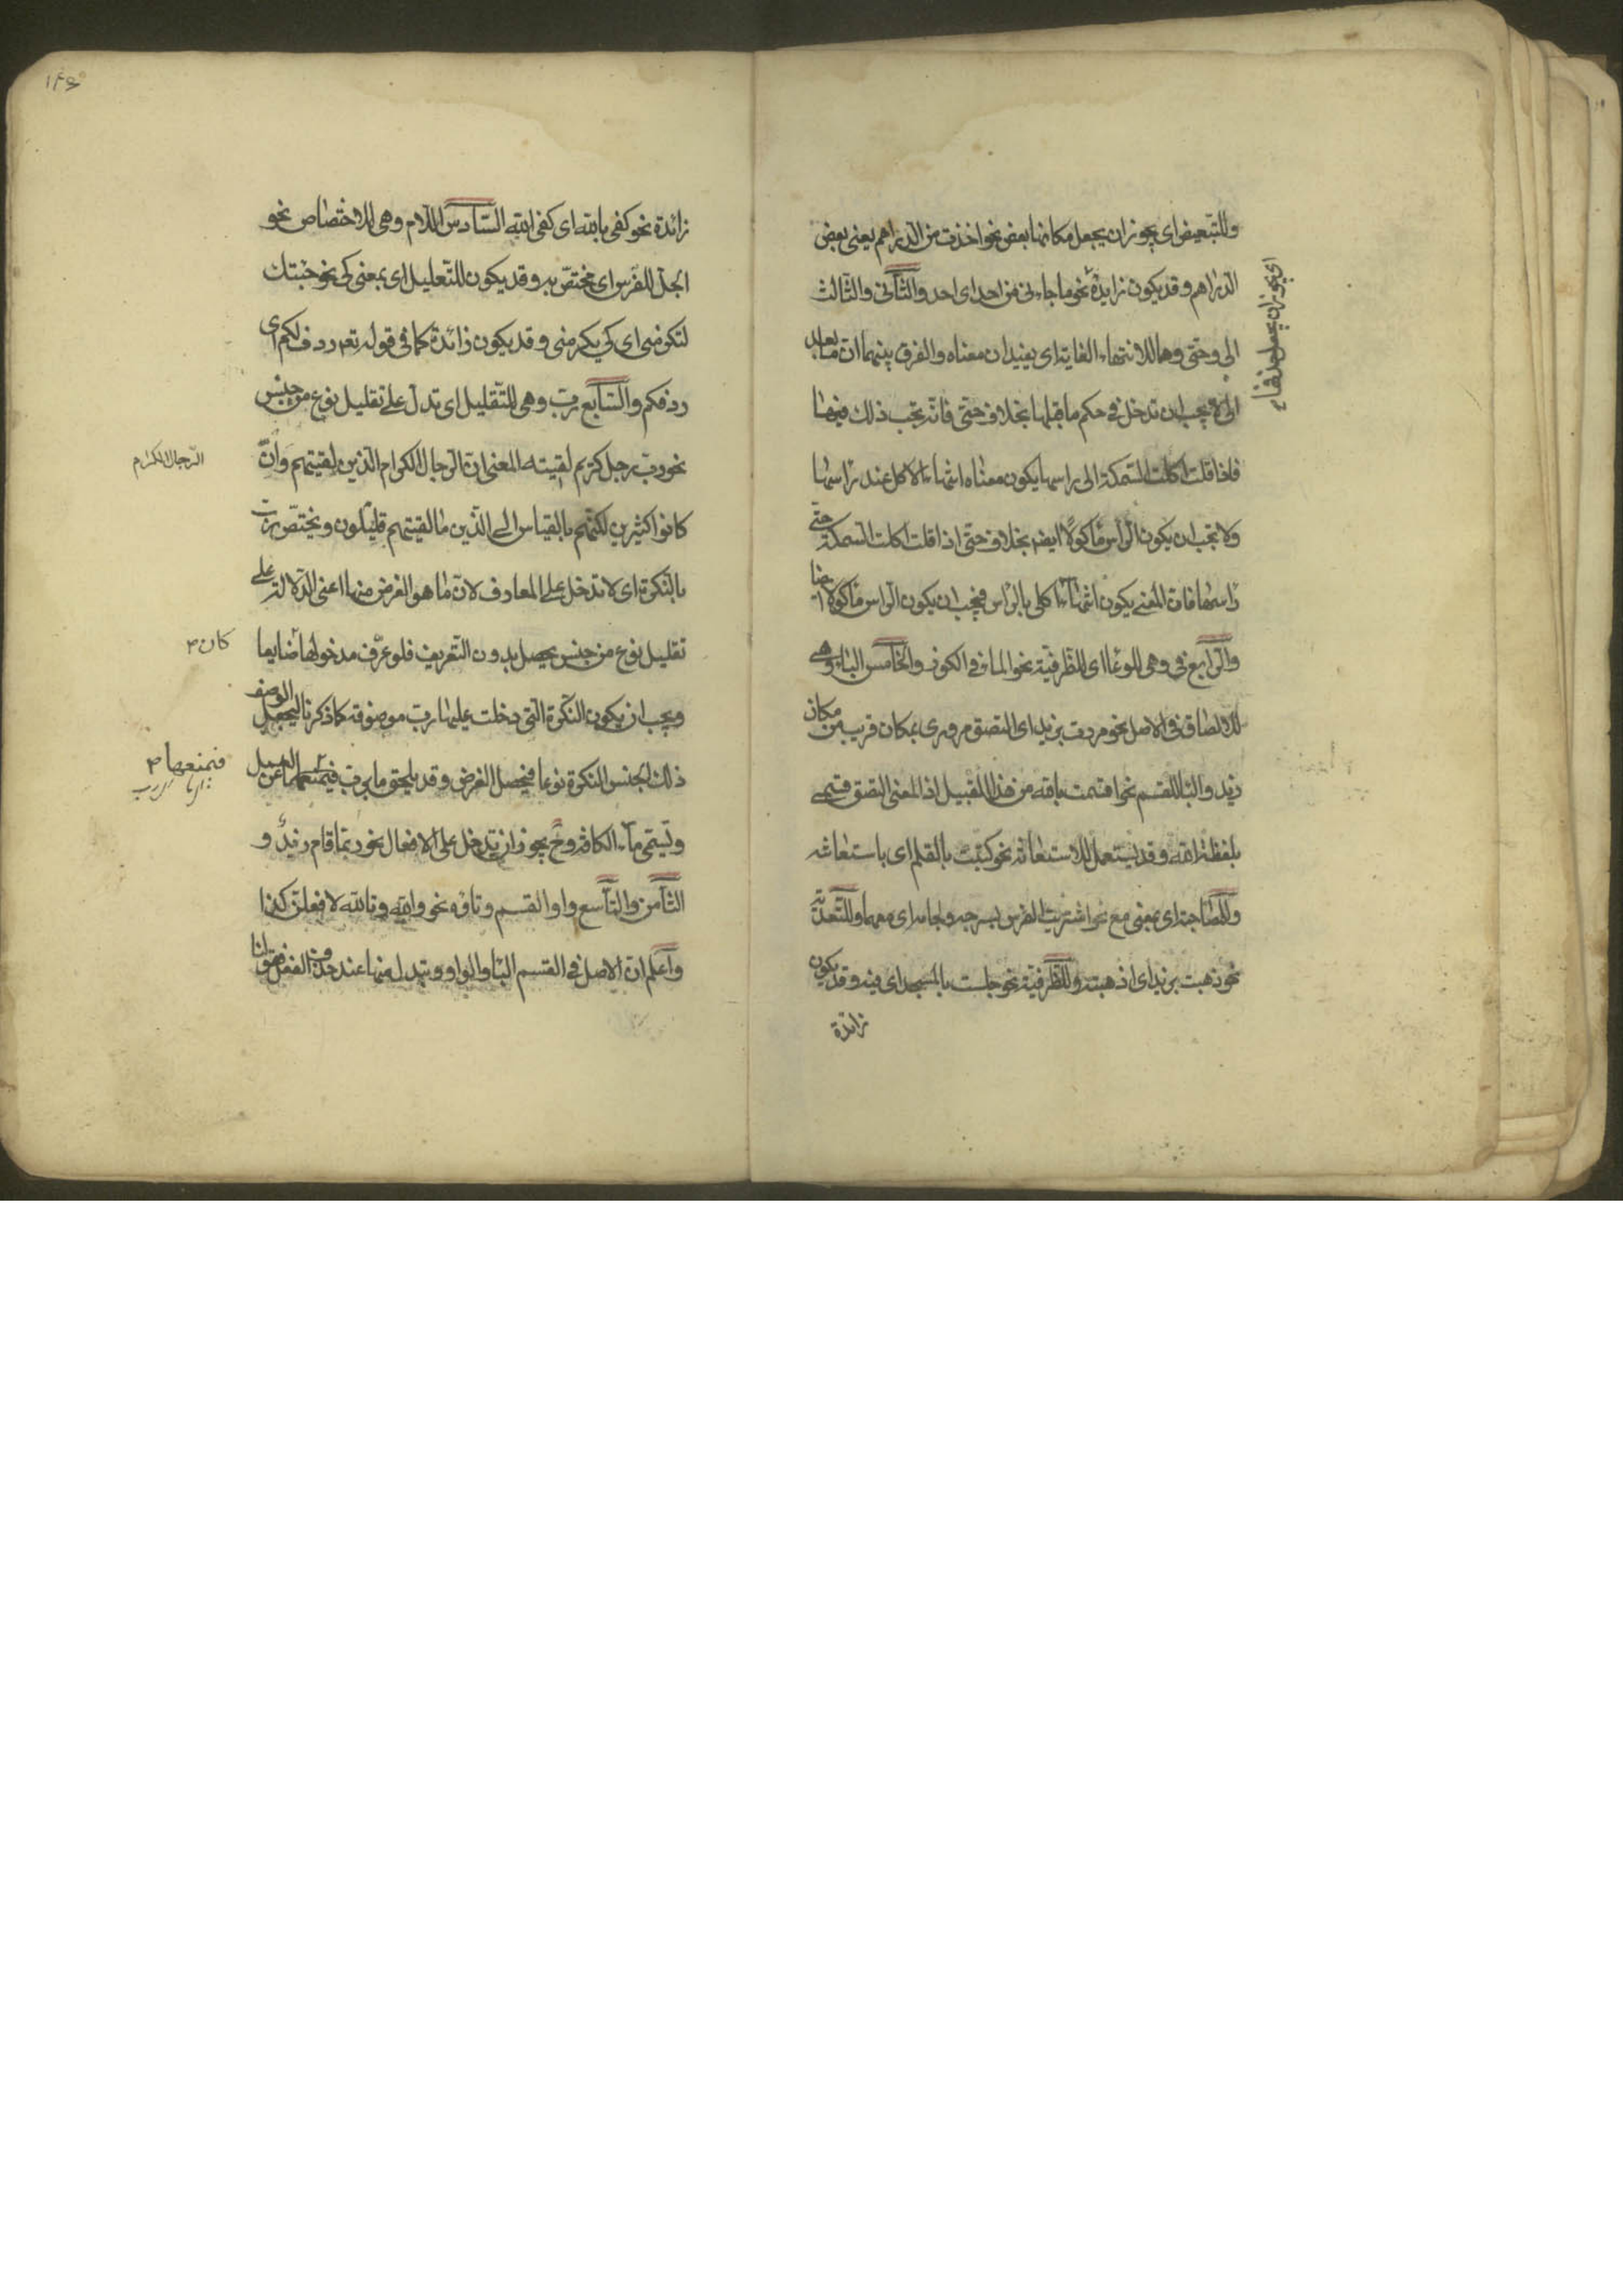 وللتبعيض اى يجوز ان يجعل مكانها بعض نحو اخذت من الدراهم يعنى بعض
الدراهم وقد يكون زايدة نحو ما جاءنى من احد اى احد والثانى والثالث
الى وحتى وهما لانتهاء الغاية اى يفيدان معناه والفرق بينهما ان ما بعد
الى لا يجب ان تدخل فى حكم ما قبلها بخلاف حتى فانه يجب ذلك فيها
فاذا قلت اكلت السمكة الى راسها يكون معناه انتهاء الاكل عند راسها
ولا يجب ان يكون الراس ماكولا ايضا بخلاف حتى اذا قلت اكلت السمكة حتى
راسها فان المعنى يكون انتهاء اكلى بالراس فيجب ان يكون الراس ماكولا ايضا
والرابع فى وهى للوعاء اى للظرفية نحو الماء فى الكوز والخامس الباء وهى
للالصاق فى الاصل نحو مررت بزيد اى التصق مرورى بمكان قريب من مكان
زيد والباء للقسم نحو اقسمت بالله من هذا القبيل اذ المعنى التصق قسمى
بلفظة الله وقد يستعمل للاستعانة نحو كتبت بالقلم اى باستعانته
وللمصاحبة اى بمعنى مع نحو اشتريت الفرس بسرجه ولجامه اى معهما وللتعدية
نحو ذهبت بزيد اى اذهبته وللظرفية نحو جلست بالمسجد اى فيه وقد يكون
زائدة
زائدة نحو كفى بالله اى كفى الله السادس اللام وهى للاختصاص نحو
الجل للفرس اى مختص به وقد يكون للتعليل اى بمعنى كى نحو جئتك
لتكرمنى اى كى يكرمنى وقد يكون زائدة كما فى قوله تعم ردف لكم اى
ردفكم والسابع رب وهى للتقليل اى تدل على تقليل نوع من جنس
نحو رب رجل كريم لقيته المعنى ان الرجال الكرام الذين لقيتهم وان
الرجال الكرام
كانوا كثيرين لكنهم بالقياس الى الذين ما لقيتهم قليلون ويختص رب
بالنكرة اى لا تدخل على المعارف لان ما هو الغرض منها اعنى الدلالة على
تقليل نوع من جنس يحصل بدون التعريف فلو عرف مدخولها ضايعا
كان
ويجب ان يكون النكرة التى دخلت عليها رب موصوفة كما ذكرنا ليجعل الوصف
ذلك الجنس النكرة نوعا فيحصل الغرض وقد يلحق ما برب فيمنعها عن العمل
فيمنعها
وتسمى ما الكافة وح يجوز ان يدخل على الافعال نحو ربما قام زيد و
الثامن والتاسع واو القسم وتاؤه نحو والله وتالله لافعلن كذا
واعلم ان الاصل فى القسم الباء والواو ويبدل منها عند حذف الفعل فقولنا